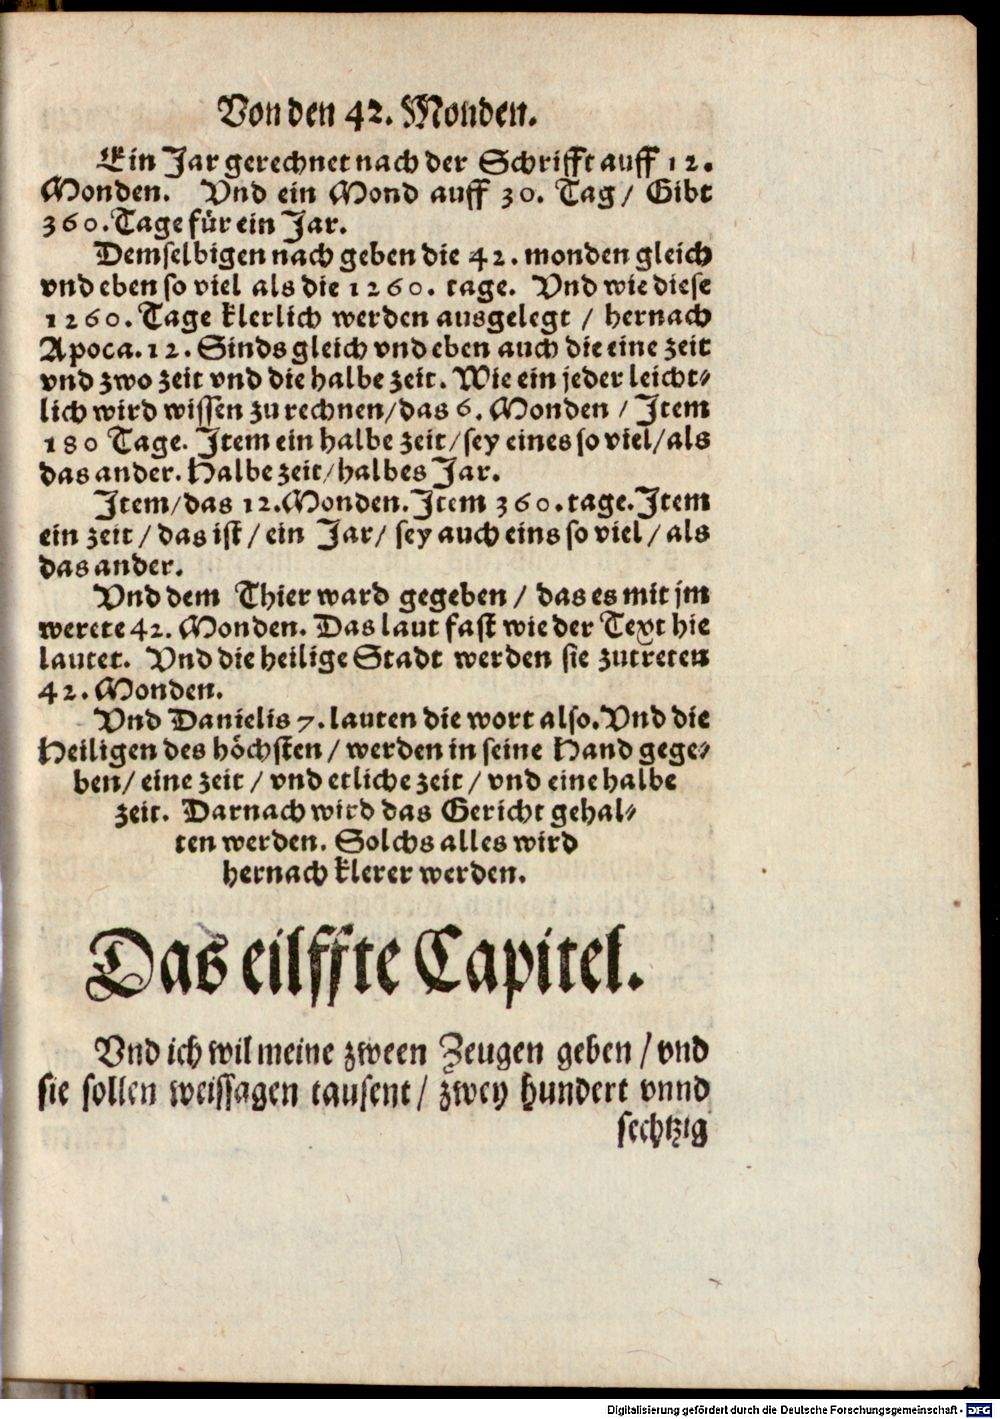 Von den 42. Monden.
Ein Jar gerechnet nach der Schrifft auff 12.
Monden. Vnd ein Mond auff 30. Tag / Gibt
360. Tage für ein Jar.
Demselbigen nach geben die 42. monden gleich
vnd eben so viel als die 1260. tage. Vnd wie diese
1260. Tage klerlich werden ausgelegt / hernach
Apoca. 12. Sinds gleich vnd eben auch die eine zeit
vnd zwo zeit vnd die halbe zeit. Wie ein jeder leicht-
lich wird wissen zu rechnen/ das 6. Monden / Item
180 Tage. Item ein halbe zeit/ sey eines so viel/ als
das ander. Halbe zeit/ halbes Jar.
Item/ das 12. Monden. Item 360. tage. Item
ein zeit / das ist / ein Jar/ sey auch eins so viel / als
das ander.
Vnd dem Thier ward gegeben / das es mit jm
werete 42. Monden. Das laut fast wie der Text hie
lautet. Vnd die heilige Stadt werden sie zutreten
42. Monden.
Vnd Danielis 7. lauten die wort also. Vnd die
Heiligen des höchsten / werden in seine Hand gege-
ben/ eine zeit / vnd etliche zeit / vnd eine halbe
zeit. Darnach wird das Gericht gehal-
ten werden. Solchs alles wird
hernach klerer werden.
Das eilffte Capitel.
Vnd ich wil meine zween Zeugen geben / vnd
sie sollen weissagen tausent / zwey hundert vnnd
sechtzig
Digitalisierung gefördert durch die Deutsche Forschungsgemeinschaft - DFG